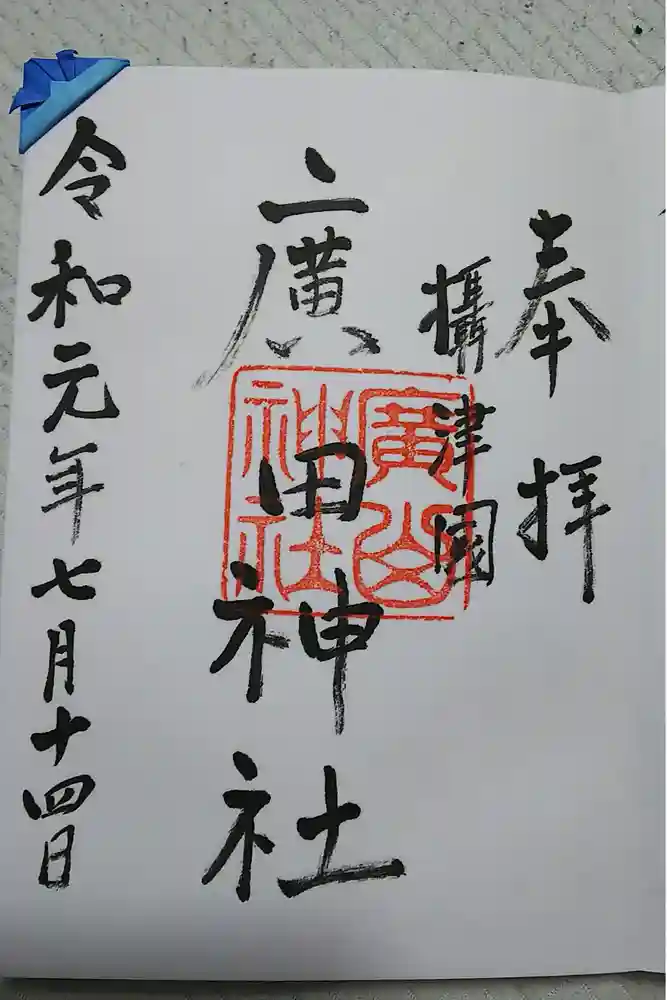 奉拝
攝津國
廣田神社
令和元年七月十四日